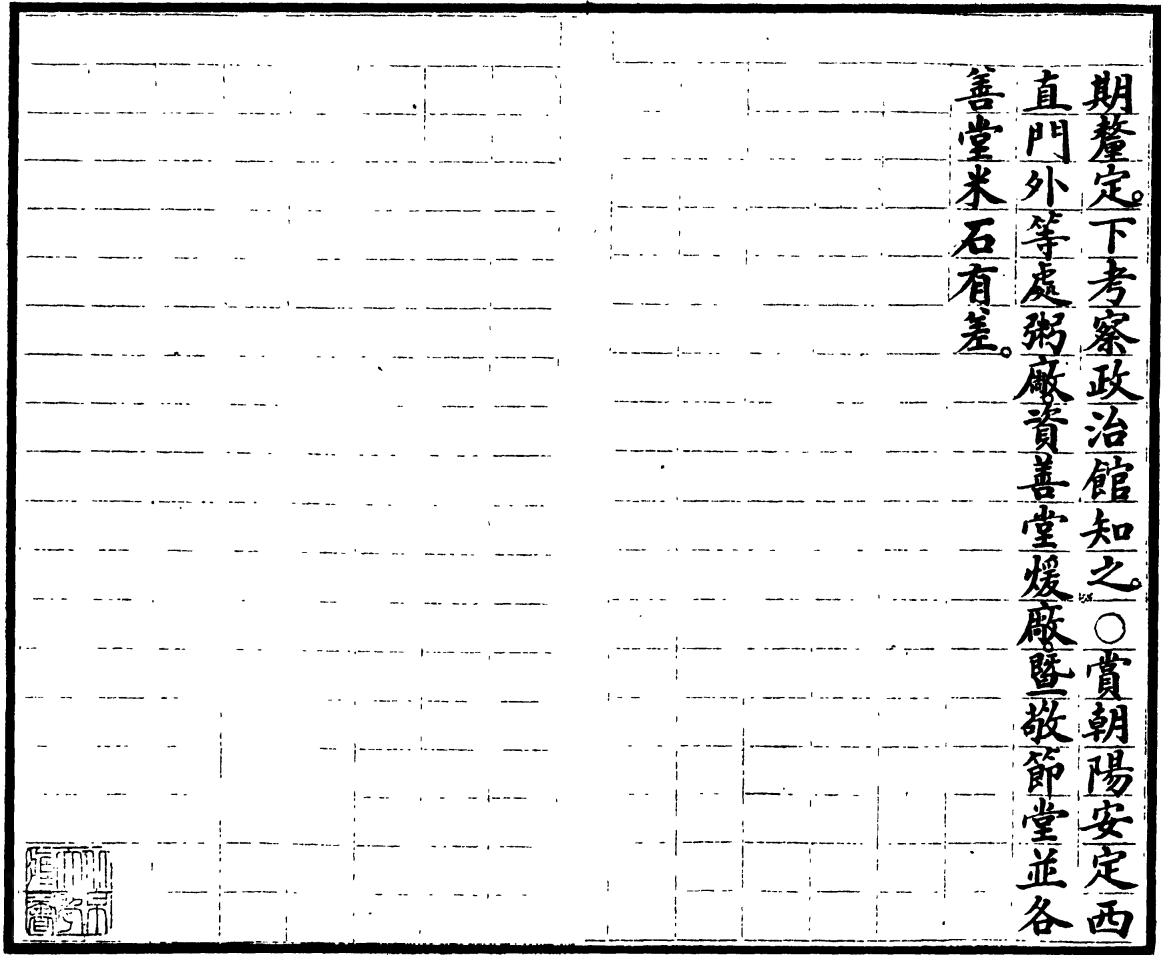 期釐定。下考察政治館知之。○賞朝陽安定西
直門外等處粥廠。資善堂煖廠。暨敬節堂並各
善堂米石有差。